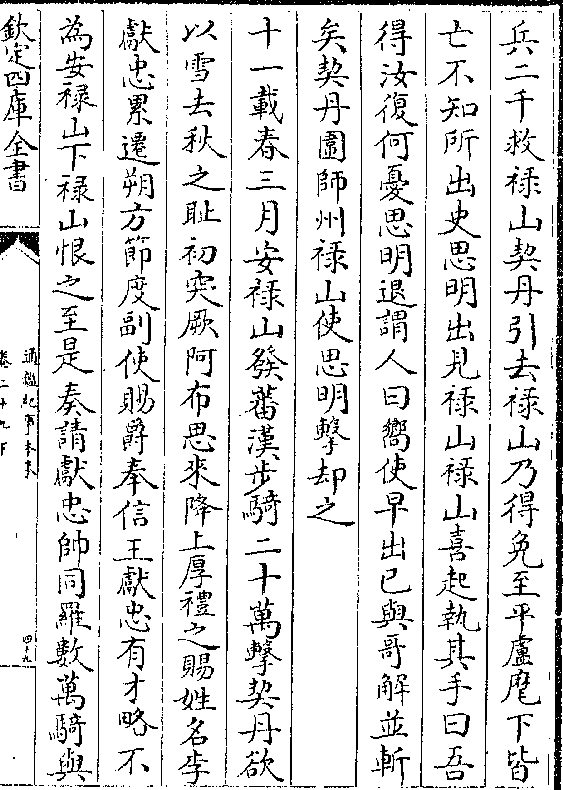 兵二千救禄山契丹引去禄山乃得免至平盧麾下皆
亡不知所出史思明出見禄山禄山喜起執其手曰吾
得汝復何憂思明退謂人曰嚮使早出已與哥解並斬
矣契丹圍師州禄山使思明擊却之
十一載春三月安禄山發蕃漢步騎二十萬擊契丹欲
以雪去秋之耻初突厥阿布思來降上厚禮之賜姓名李
獻忠累遷朔方節度副使賜爵奉信王獻忠有才略不
為安禄山下禄山恨之至是奏請獻忠帥同羅數萬騎與
欽定四庫全書
通鑑紀事本末
卷二十九下
四十九